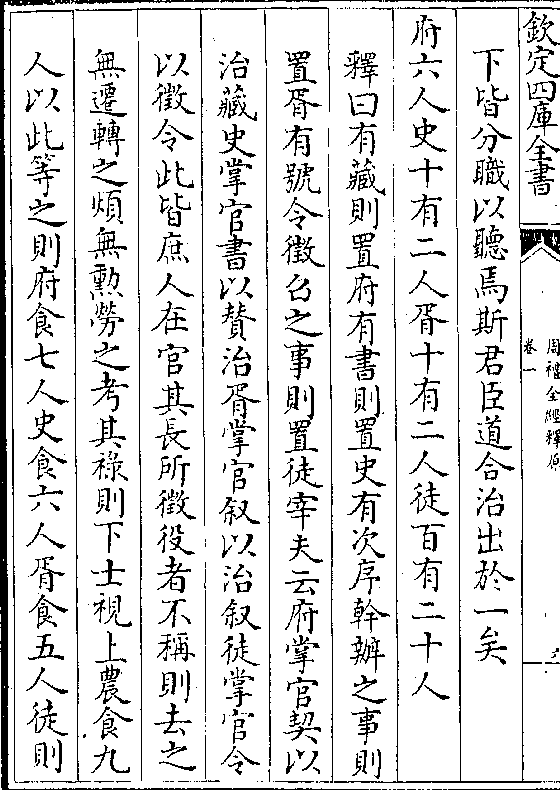 欽定四庫全書
周禮全經釋原
卷一
下皆分職以聽焉斯君臣道合治出於一矣
府六人史十有二人胥十有二人徒百有二十人
釋曰有藏則置府有書則置史有次序幹辦之事則
置胥有號令徵召之事則置徒宰夫云府掌官契以
治藏史掌官書以贊治胥掌官叙以治叙徒掌官令
以徵令此皆庶人在官其長所徵役者不稱則去之
無遷轉之煩無勲勞之考其祿則下士視上農食九
人以此等之則府食七人史食六人胥食五人徒則